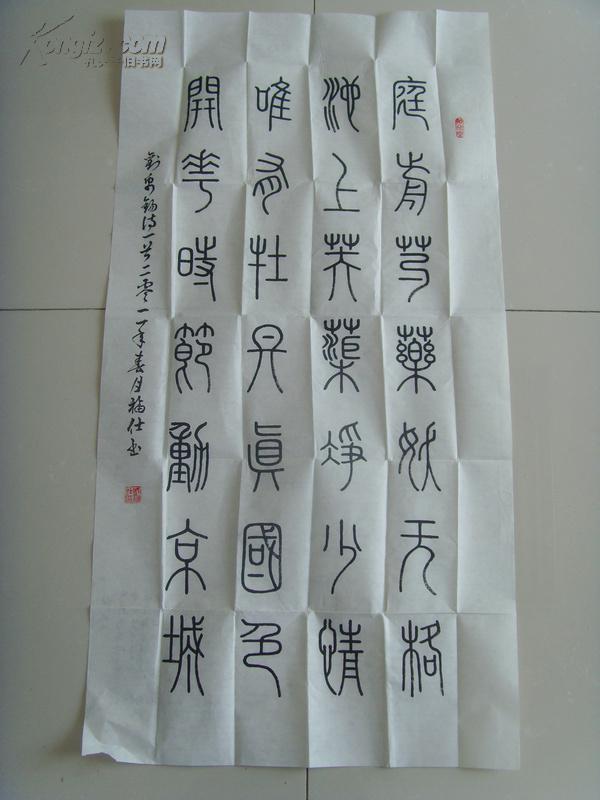 庭前芍藥妖无格
池上芙蕖淨少情
唯有牡丹眞國色
開花時節動京城
劉禹錫詩一首二零一一年春月福仕书
Kongfz.com
孔夫子旧书网